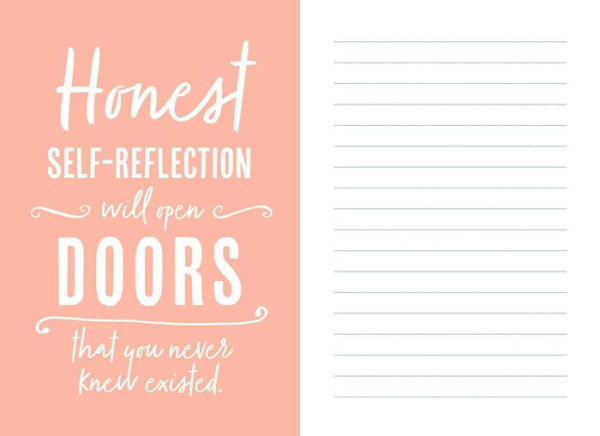 Honest
SELF-REFLECTION
will open
DOORS
that you never
knew existed.